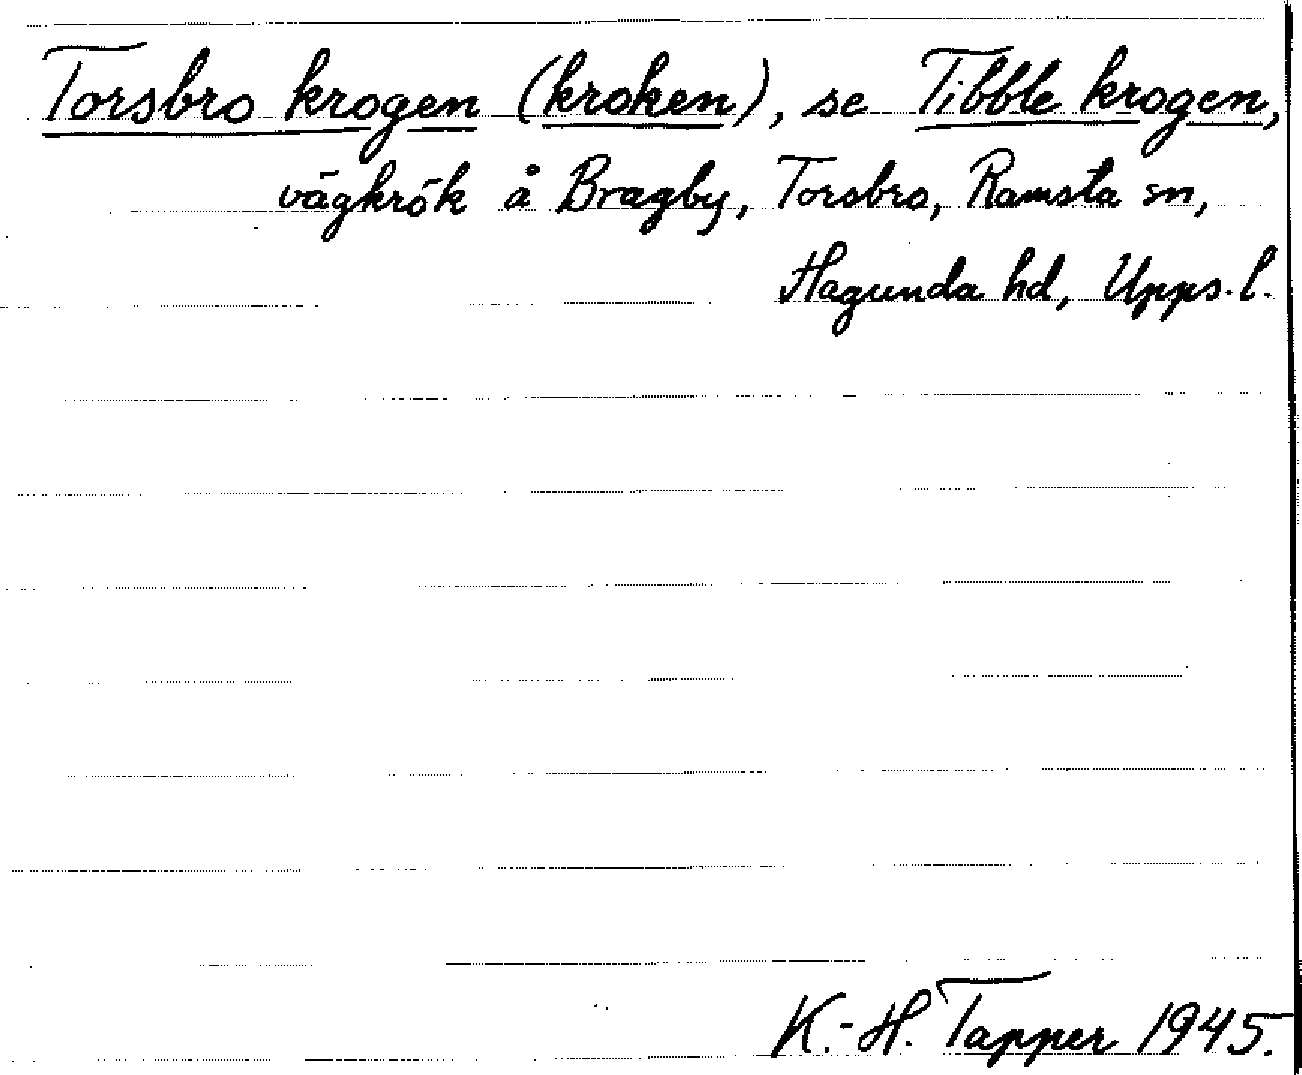 Torsbro krogen (kroken), se Tibble krogen,
vägkrök å Bragby, Torsbro, Ramsta sn,
Hagunda hd, Upps. l.
K.-H. Tapper 1945.